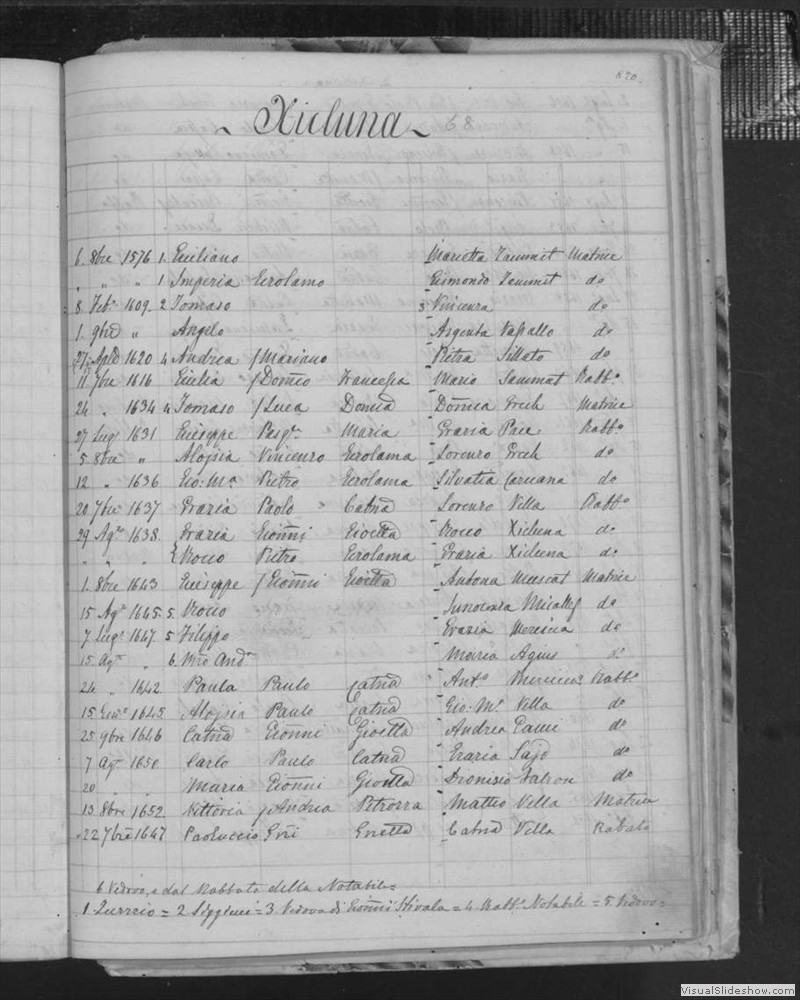 820.
~ Xicluna ~ 68
6. 8bre 1576 1. Giuliano Marietta Zammit Matrice
" " " 1 Imperia Gerolamo Raimondo Zammit do
8 Feb. 1609. 2 Tomaso 3 Vincenza do
1. 9bre " Angelo Argenta Vassallo do
27 Aple 1620 4 Andrea / Mariano Pietra do
11. 7bre 1616 Giulia / Domco Francesca Mario Sammat Rabbo
24 " 1634 4 Tomaso / Luca Domca Domca Grech Matrice
27 Lug. 1631 Giuseppe Pasqe Maria Grazia Pace Rabbo
5. 8bre " Aloisia Vincenzo Gerolama Lorenzo Grech do
12 " 1636 Gio: Ma Pietro Gerolama Silvatia Caruana do
20 7bre 1637 Grazia Paolo Catna Lorenzo Vella Rabbo
29 Ago 1638. Grazia Gionni Gioetta Rocco Xicluna do
" " " Rocco Pietro Gerolama Grazia Xicluna do
1. 8bre 1643 Giuseppe / Gionni Gioetta Antona Muscat Matrice
15 Ago 1645. 5. Rocco Micallef do
7 1647 5 Filippo Grazia do
15 Ago " 6. Maria Agius do
24 " 1642 Paula Paulo Catna Anto Rabbo
15 1645. Aloisia Paulo Catna Gio: Ma Vella do
25 9bre 1646 Catna Gionni Gioetta Andrea Gauci do
7 Ago 1650 Carlo Paulo Catna Grazia do
20 " " Maria Gionni Gioetta Dionisio Falson do
13 8bre 1652. Vittoria / Andrea Petrorra Matteo Vella Matrice
22 7bre 1647 Paoluccio Catna Vella Rabato
6 Vedovo, e dal Rabbato della Notabile =
1 = 2 Siggiewi = 3 Vedova di Gionni Stivala = 4 Rabbo Notabile = 5 Vedovo =
VisualSlideshow.com